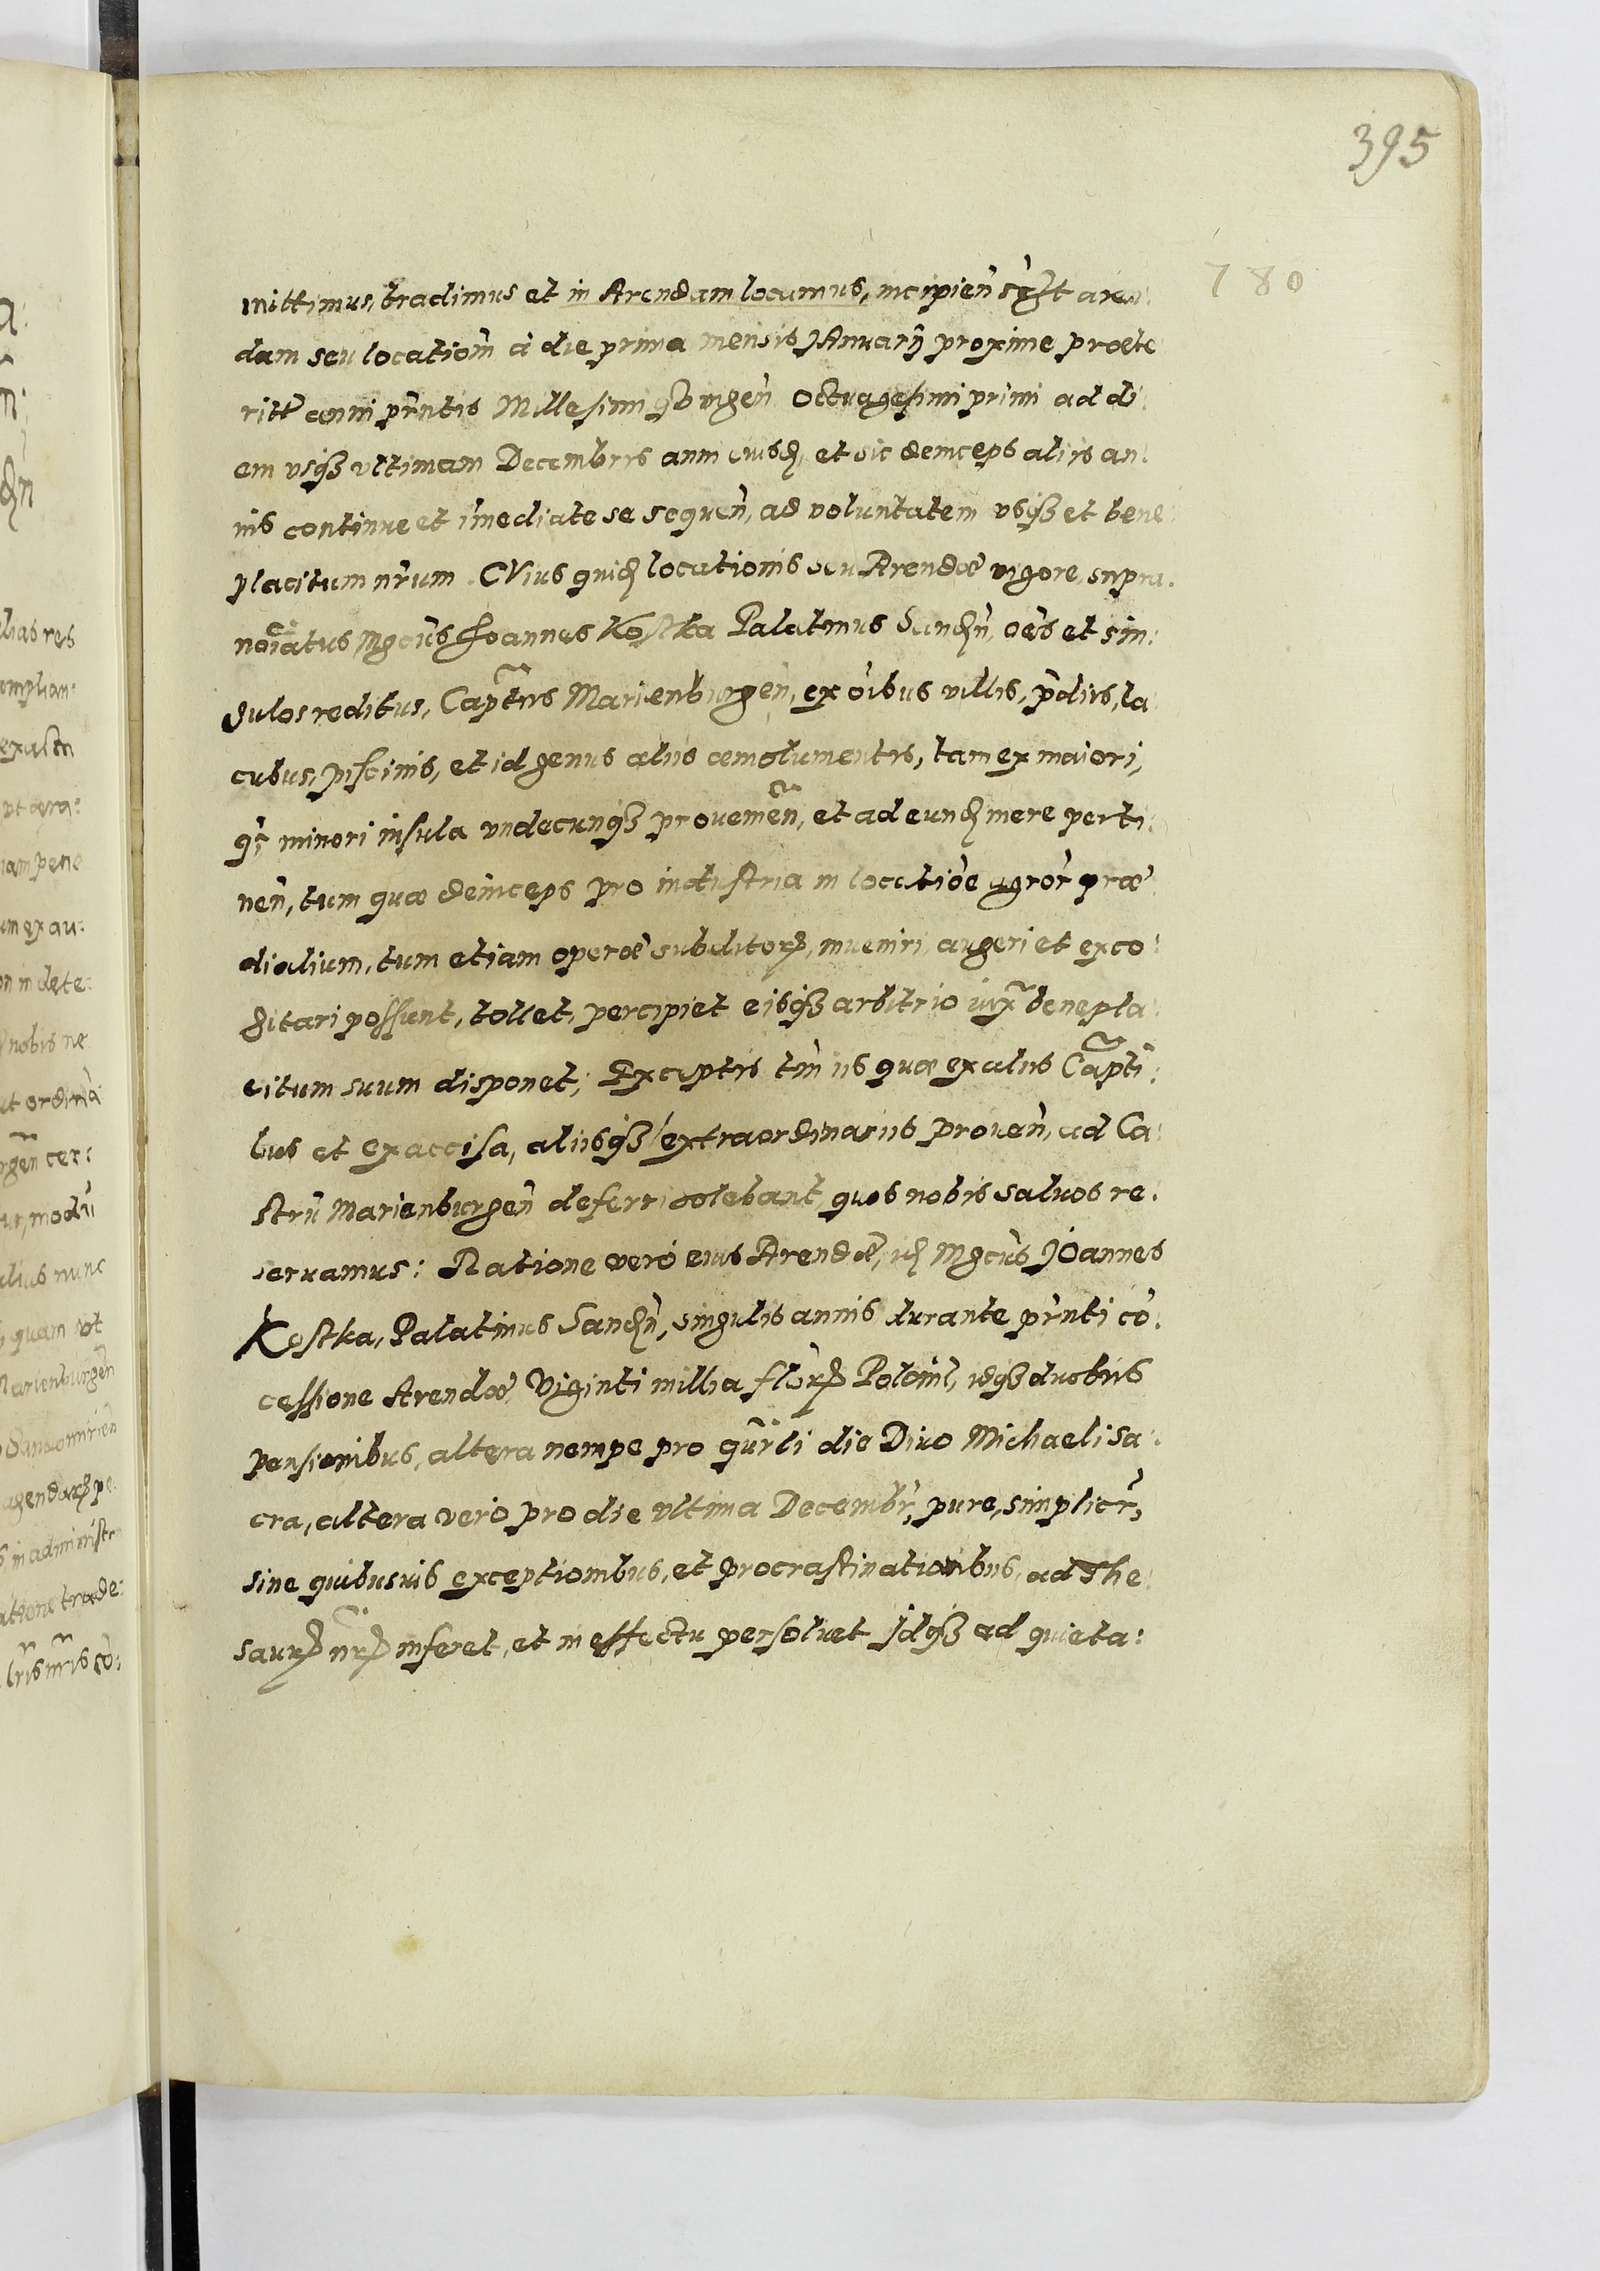 395
780
mittimus, tradimus et in Arendam locamus, incipien̄ aren:
dam seu locatiōn à die prima mensis JAnuarÿ proxime præte
riti anni prn̄tis Millesimi qͦuingen̄ Octuagesimi primi ad di:
em vsqȝ vltimam Decembris anni eiusd, et sic deinceps aliis an:
nis continue et im̄ediate se sequen̄, ad voluntatem vsqȝ et bene
placitum nr̄um. CVius quid locationis seu Arendæ vigore, supra:
noīatus Mgcūs Joannes Kostka Palatinus Sandn̄, oēs et sin:
gulos reditus, Capt̄us Marienburgen̄, ex oībus villis, p̄diis, la
cubus, piscinis, et id genus aliis æmolumentis, tam ex maiori,
q̄ minori insula vndecunqȝ prouenien̄, et ad eund mere perti:
nen̄, tum quæ deinceps pro industria in locatiōe agror̄ præ
dialium, tum etiam operæ subditorꝝ, inueniri augeri et exco:
gitari possunt, tollet, percipiet eisqȝ arbitrio iuxᵃ benepla:
citum suum disponet; Exceptis tn̄ iis quæ ex aliis Capti:
bus et ex accisa, aliisqȝ extraordinariis prouen̄, ad Ca:
strū Marienburgen̄ deferri solebant quos nobis saluos re:
seruamus: Ratione verò eius Arendæ, id Mgcūs JOannes
Kostka, Palatinus Sandn̄, singulis annis durante prn̄ti cō:
cessione Arendæ, Viginti millia flōrꝝ Polōnl, idqȝ duobus
pensionibus, altera nempe pro qūrli die Diuo Michaeli sa:
cra, altera vero pro die vltima Decembr̄, pure, simplicr̄,
sine quibusuis exceptionibus, et procrastinationibus, ad The:
saurꝝ nrꝝ inferet, et in effectu persoluet Jdqȝ ad quieta: